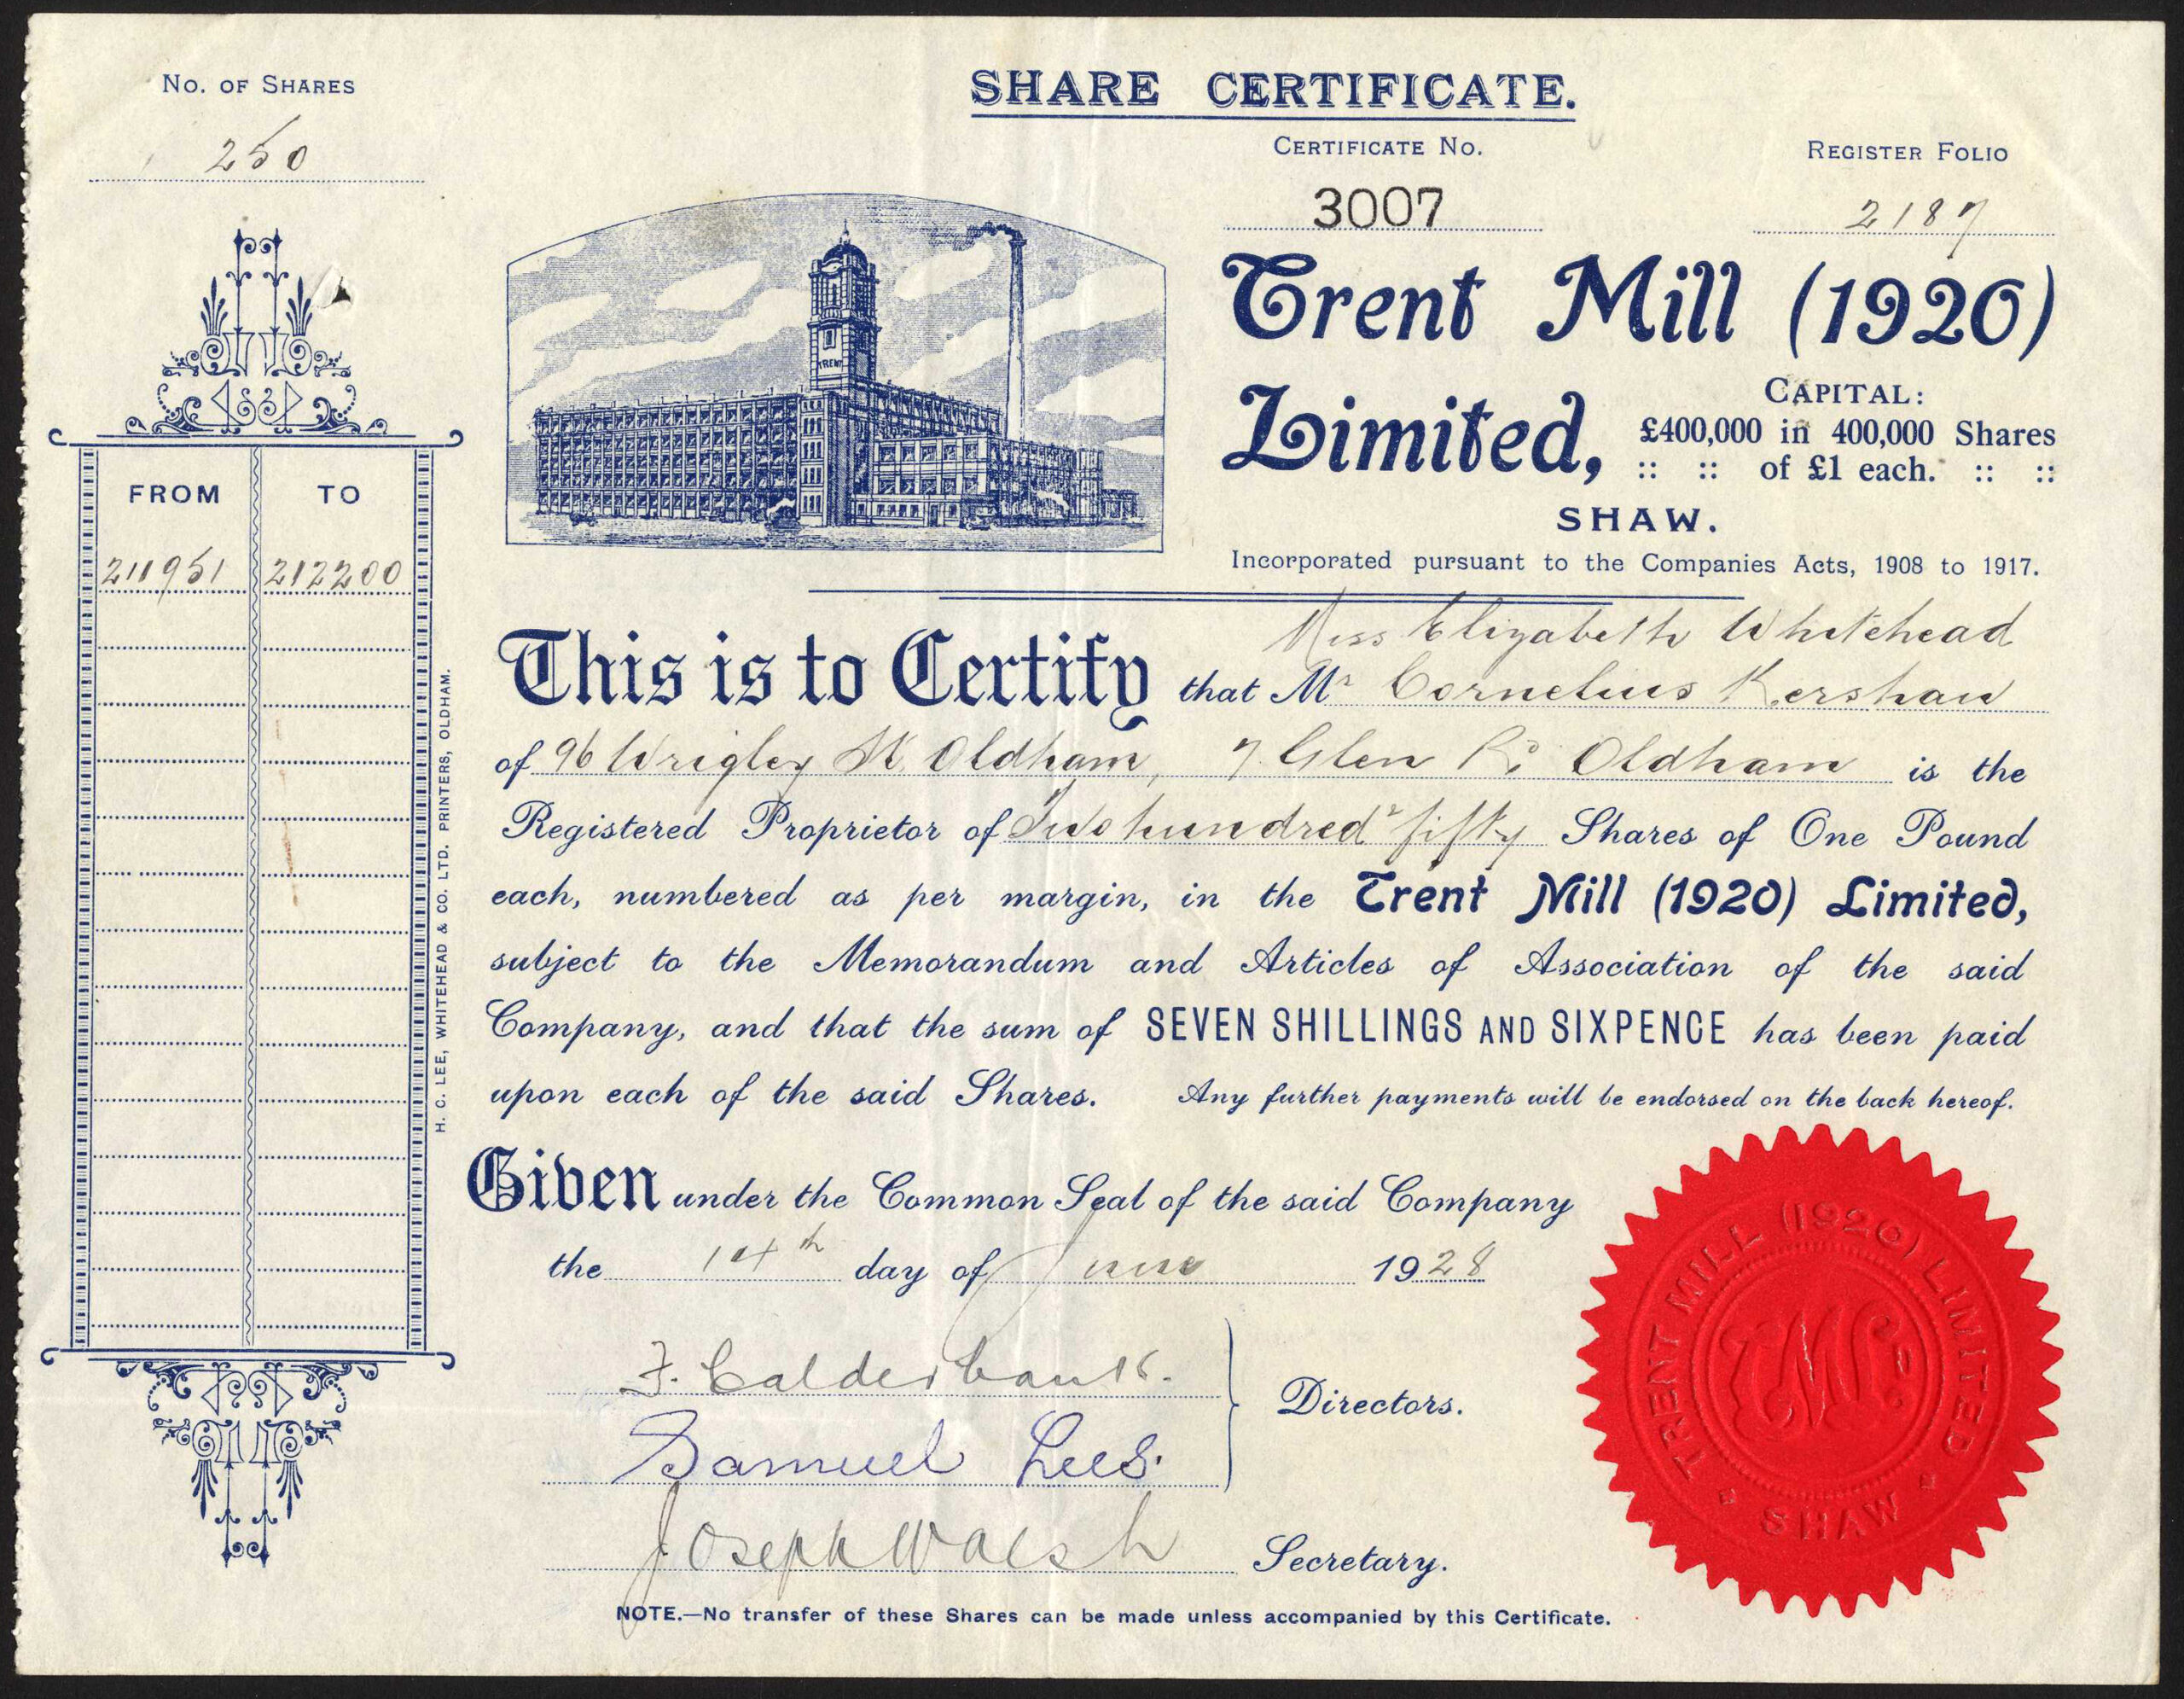 No. of Shares
250
SHARE CERTIFICATE.
Certificate No.
3007
Register Folio
2187
TRENT
Trent Mill (1920)
Limited,
CAPITAL:
£400,000 in 400,000 Shares
:: :: of £1 each. :: ::
SHAW.
Incorporated pursuant to the Companies Acts, 1908 to 1917.
FROM TO
211951 212200
H. C. LEE, WHITEHEAD & CO. LTD. PRINTERS, OLDHAM.
Miss Elizabeth Whitehead
This is to Certify that Mr Cornelius Kershaw
of 96 Wrigley St. Oldham, 7 Glen Oldham is the
Registered Proprietor of Two hundred & fifty Shares of One Pound
each, numbered as per margin, in the Trent Mill (1920) Limited,
subject to the Memorandum and Articles of Association of the said
Company, and that the sum of SEVEN SHILLINGS AND SIXPENCE has been paid
upon each of the said Shares. Any further payments will be endorsed on the back hereof.
Given under the Common Seal of the said Company
the 14th day of June 1928
F. Calderbank.
Samuel Lees.
Directors.
Joseph Walsh Secretary.
NOTE.—No transfer of these Shares can be made unless accompanied by this Certificate.
TRENT MILL (1920) LIMITED
SHAW